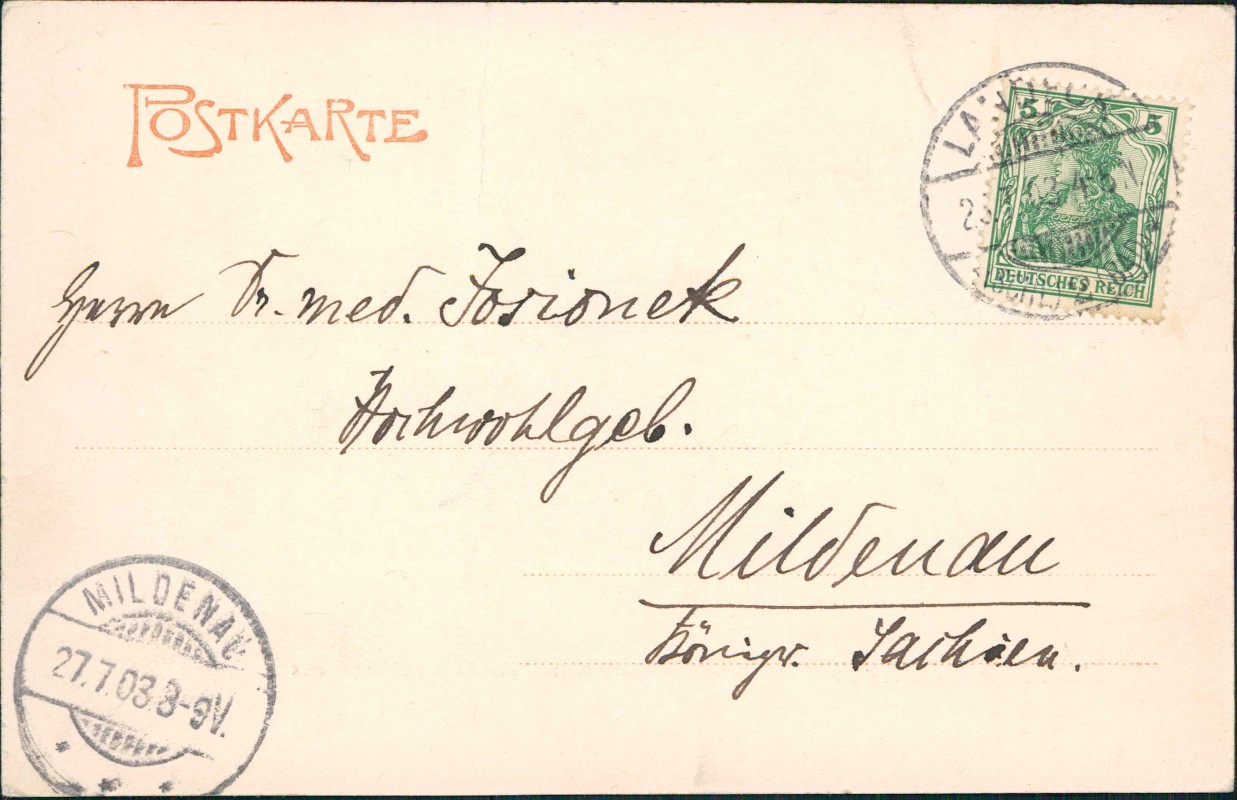 POSTKARTE
5 5
DEUTSCHES REICH
Herrn Dr. med. Josionek
Hochwohlgeb.
Mildenau
Königr. Sachsen.
MILDENAU
27.7.03.8-9V.